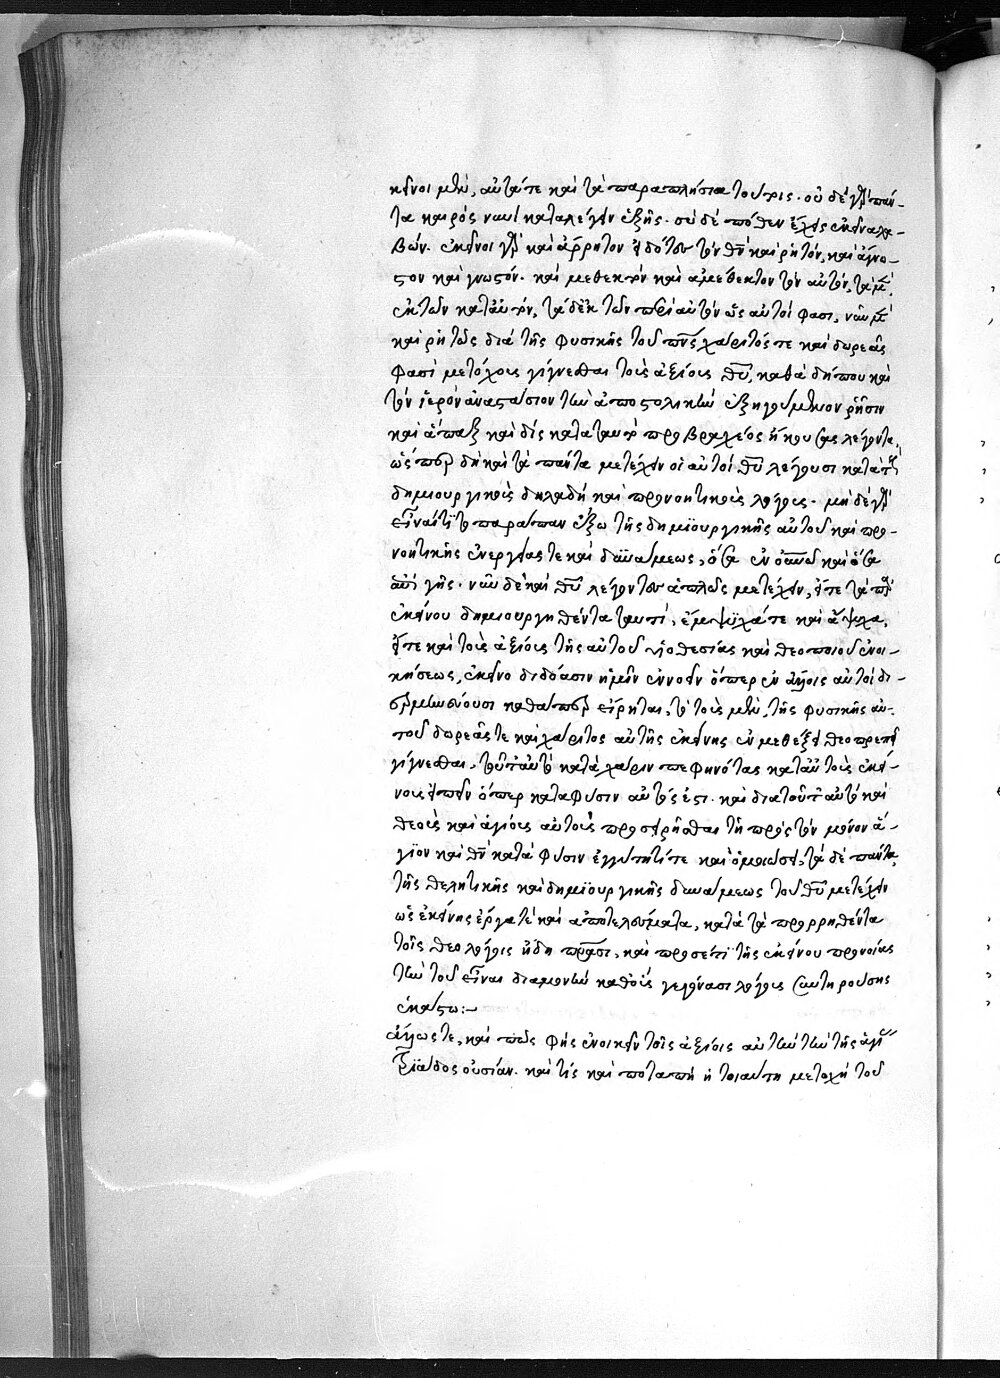 κεῖνοι μὲν, αὐτά τε καὶ τὰ παραπλήσια τούτοις· οὐ δὲ γὰρ πάν-
τα καιρὸς νυνὶ καταλέγειν ἑξῆς· σὺ δὲ πόθεν ἔχεις ἐκεῖνα λα-
βών· ἐκεῖνοι γὰρ καὶ ἄρρητον εἰδότες τὸν θν καὶ ῥητόν, καὶ ἄγνω-
στον καὶ γνωστόν· καὶ μεθεκτὸν καὶ ἀμέθεκτον τὸν αὐτόν, τὰ μὲν
ἐκ τῶν κατ' αὐτόν, τὰ δ' ἐκ τῶν περὶ αὐτὸν ὥς αὐτοί φασι, νῦν μὲν
καὶ ῥητῶς διὰ τῆς φυσικῆς τοῦ πνς χάριτός τε καὶ δωρεᾶς
φασὶ μετόχους γίγνεσθαι τοὺς ἀξίους θυ, καθὰ δήπου καὶ
τὸν ἱερὸν ἀναστάσιον τῶν ἀποστολικῶν ἐξηγούμενον ῥῆσιν
καὶ ἅπαξ καὶ δὶς κατὰ ταυτὸ προβραχέος ἤκουσας λέγοντα,
ὥσπερ δὴ καὶ τὰ πάντα μετέχειν οἱ αὐτοὶ θυ λέγουσι κατὰ τοὺς
δημιουργικοὺς δηλαδὴ καὶ προνοητικοὺς λόγους· μὴ δὲ γὰρ
εἶναί τι τὸ παράπαν ἔξω τῆς δημϊουργικῆς αὐτοῦ καὶ προ-
νοητικῆς ἐνεργείας τε καὶ δυνάμεως, ὅσα ἐν οὐνῶ καὶ ὅσα
ἐπὶ γῆς· νῦν δὲ καὶ θυ λέγοντες ἁπλῶς μετέχειν, εἴτε τὰ παρ'
ἐκείνου δημιουργηθέντα ταυτί, ἔμψϋχά τε καὶ ἄψυχα,
εἴτε καὶ τοὺς ἀξίους τῆς αὐτοῦ υἱοθεσίας καὶ θεοποιοῦ ἐνοι-
κήσεως, ἐκεῖνο διδόασιν ἡμῖν ἐννοεῖν ὅπερ ἐν ἄλλοις αὐτοὶ δι-
ερμηνεύουσι καθάπερ εἴρηται, τὸ τοὺς μὲν, τῆς φυσικῆς αὐ-
τοῦ δωρεᾶς τε καὶ χάριτος αὐτῆς ἐκείνης ἐν μεθέξει θεοπρεπεῖ
γίγνεσθαι, τοῦτ' αὐτὸ κατὰ χάριν πεφηνότας κατ' αὐτοὺς ἐκεί-
νους εἰπεῖν ὅπερ κατὰ φύσιν αὐτός ἐστι· καὶ διὰ τοῦτ' αὐτὸ καὶ
θεοὺς καὶ ἁγίους αὐτοὺς προσειρῆσθαι τῇ πρὸς τὸν μόνον ἅ-
γϊον καὶ θν κατὰ φύσιν ἐγγυτητί τε καὶ ὁμοιώσει, τὰ δὲ πάντα,
τῆς θελητικῆς καὶ δημϊουργικῆς δυνάμεως τοῦ θυ μετέχειν
ὡς ἐκείνης ἔργα τὲ καὶ ἀποτελούμενα, κατὰ τὰ προρρηθέντα
τοῖς θεολόγοις ἤδη πρασι, καὶ προσέτι τῆς ἐκείνου προνοίας
τῶν τοῦ εἶναι διαμονῶν καθ' οὓς γεγόνασι λόγους συντηρούσης
ἑκάστω:-
ἄλλως τε, καὶ πῶς φῂς ἐνοικεῖν τοῖς ἀξίοις αὐτὴν τὴν τῆς ἁγί
τρϊάδος οὐσίαν· καὶ τίς καὶ ποταπὴ ἡ τοιαύτη μετοχὴ τοῦ